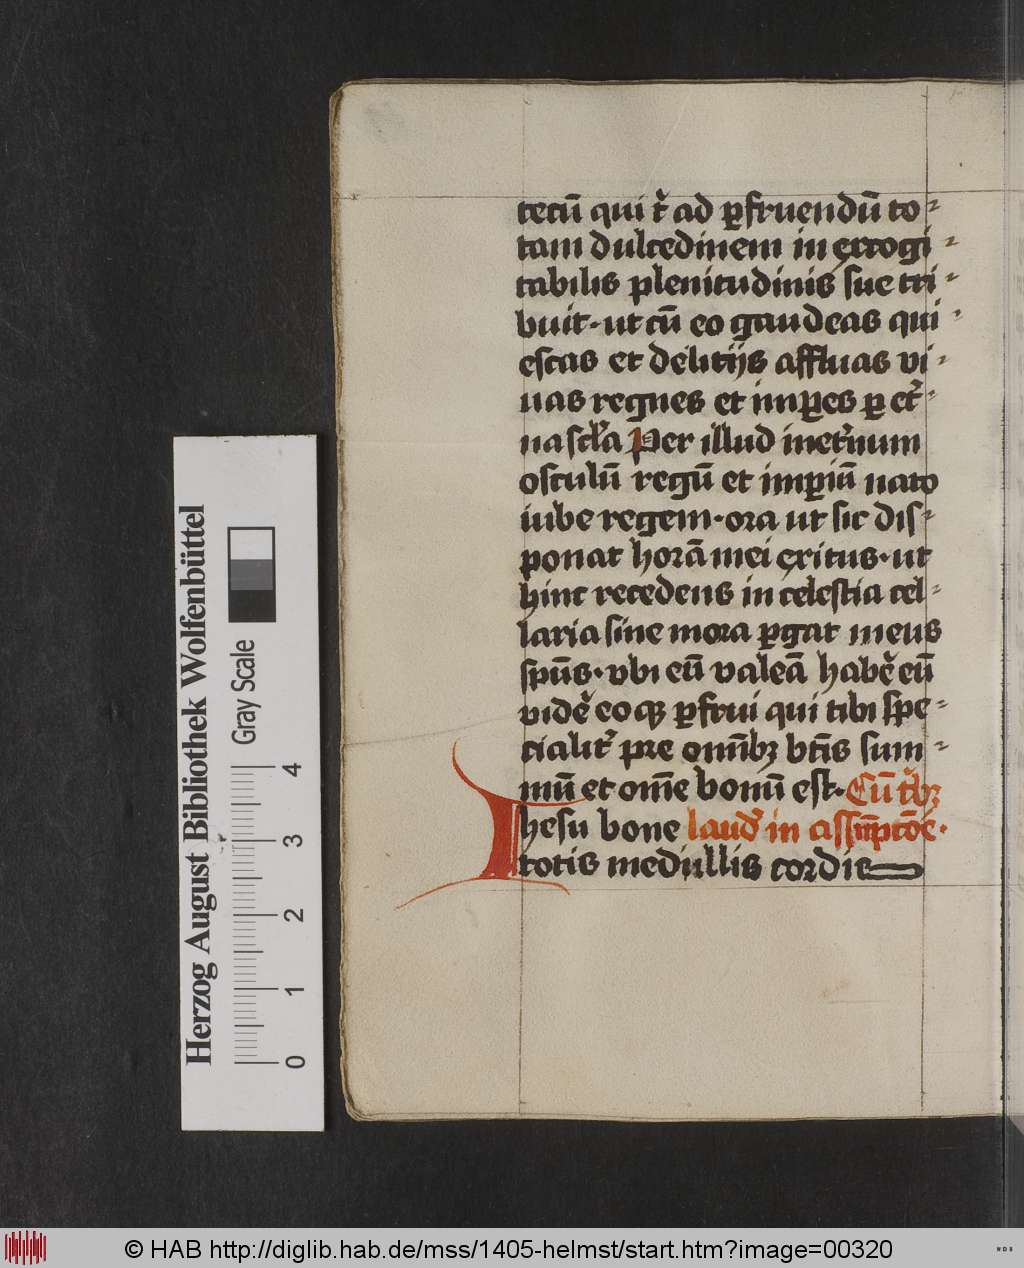 tecū qui t̄ ad ꝑfruendū to⸗
tam dulcedinem in exrogi⸗
tabilis plenitudinis sue tri⸗
buit·ut cū eo gaudeas qui⸗
escas et delitijs affluas vi⸗
uas regnes et imꝑes ꝑ et̾⸗
na scl̾a Per illud inet̾num
osculū regū et imꝑiū nato
iube regem·ora ut sic dis⸗
ponat horā mei exitus·ut
hinc recedens in celestia cel⸗
laria sine mora ꝑgat meus
sp̄us·vbi eū valeā hab̾e eū
vid̾e eoqꝫ ꝑfrui qui tibi spe⸗
cialit̾ pre om̄ibꝫ bt̄is sum⸗
mū et om̄e bonū est·Cū t̾bꝫ
Ihesu bone laud̾ in assūpcōe·
totis medullis cordis
Herzog August Bibliothek Wolfenbüttel
Gray Scale
0 1 2 3 4
© HAB http://diglib.hab.de/mss/1405-helmst/start.htm?image=00320